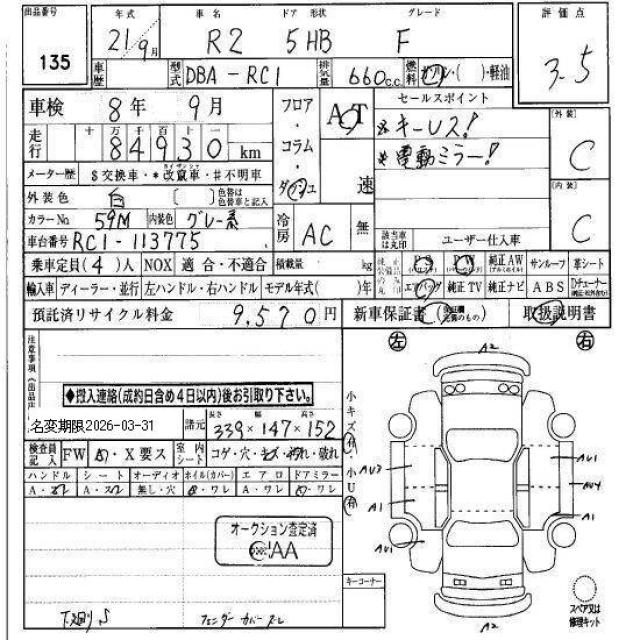 出品番号 135
年式 21/9月
車名 R2
ドア 形状 5HB
グレード F
評価点 3.5
車歴
型式 DBA-RC1
排気量 660c.c.
燃料 ガソリン・( )・軽油
車検 8年 9月
フロア・コラム・ダッシュ
AT
速
セールスポイント
※キーレス!
※電動ミラー!
走行 十 万 千 百 十 一
84930 km
メーター歴 $交換車・*改竄車・#不明車
外装色 白 〔 〕色替は色替車と記入
カラーNo 59M 内装色 グレー系
冷房 AC 無
車台番号 RC1-113775
[外装] C
[内装] C
該当車は丸印 ユーザー仕入車
乗車定員(4)人 NOX 適合・不適合 積載量 kg
PS PW 純正AW サンルーフ 革シート
輸入車 ディーラー・並行 左ハンドル・右ハンドル モデル年式( )年
エアバッグ 純正TV 純正ナビ ABS Dチューナー
預託済リサイクル料金 9,570円
新車保証書 取扱説明書
左 右
注意事項
◆搬入連絡(成約日含め4日以内)後お引取り下さい。
名変期限2026-03-31
諸元 長さ 339×幅 147×高さ 152
検査員記入 FW A・X要ス 室内シート コゲ・穴・キズ・汚れ・破れ
ハンドル シート オーディオ ホイル(カバー) エアロ ドアミラー
無し・穴
A・ワレ
小キズ有・小U有
オークション査定済
AA
キーコーナー
A2
AU3
A1
AU1
AU1
AU4
A1
A2
スペア又は修理キット
下廻りS
フェンダーカバーズレ